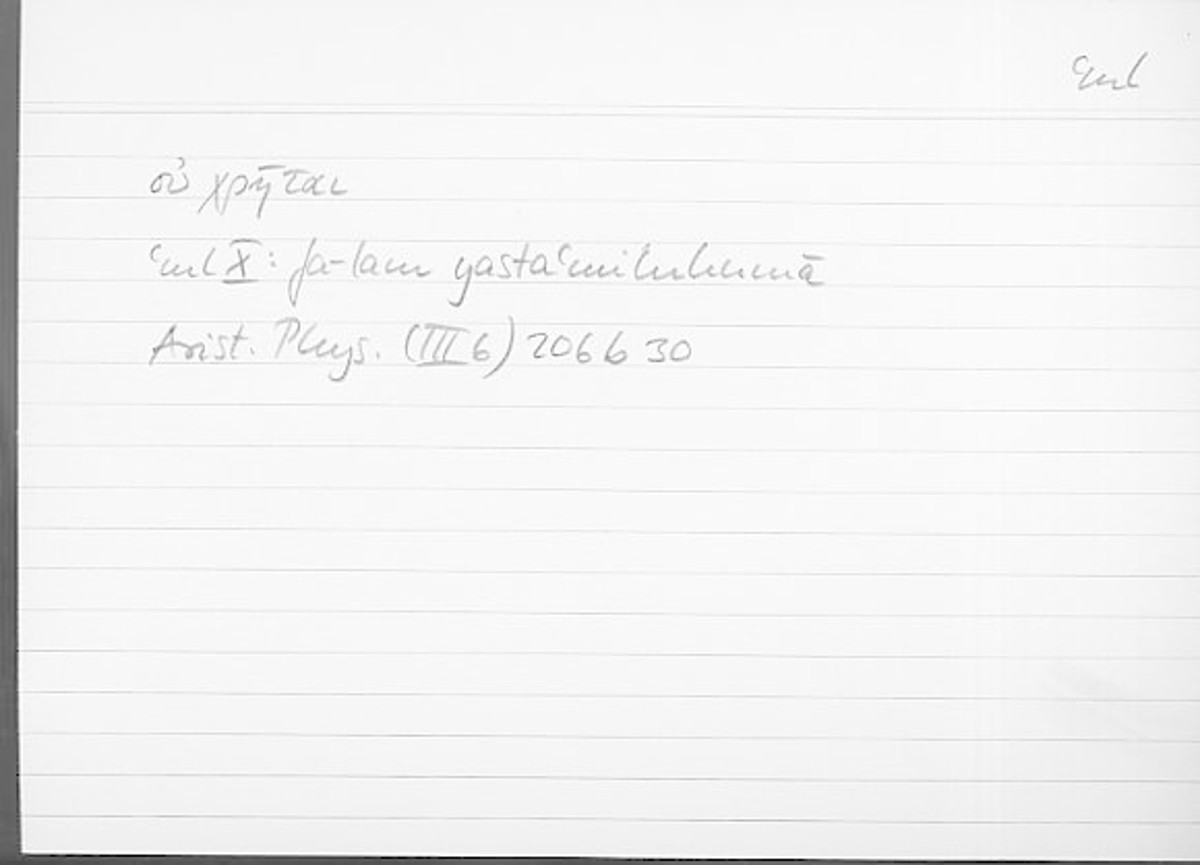 ʿml
οὐ χρῆται
ʿml X: fa-lam yastaʿmilhumā
Arist. Phys. (III 6) 206 b 30